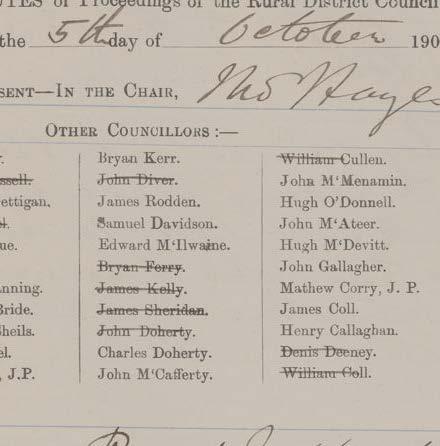 UTES of Proceedings of the Rural District Council
the 5th day of October 190
SENT—IN THE CHAIR, Thos Hayes
OTHER COUNCILLORS :—
r. Bryan Kerr. William Cullen.
ssell. John Diver. John M‘Menamin.
ettigan, James Rodden. Hugh O'Donnell.
el. Samuel Davidson. John M‘Ateer.
ue. Edward M‘Ilwaine. Hugh M‘Devitt.
Bryan Ferry. John Gallagher.
anning. James Kelly. Mathew Corry, J. P.
Bride. James Sheridan. James Coll.
Sheils. John Doherty. Henry Callaghan.
el. Charles Doherty. Denis Deeney.
, J.P. John M‘Cafferty. William Coll.